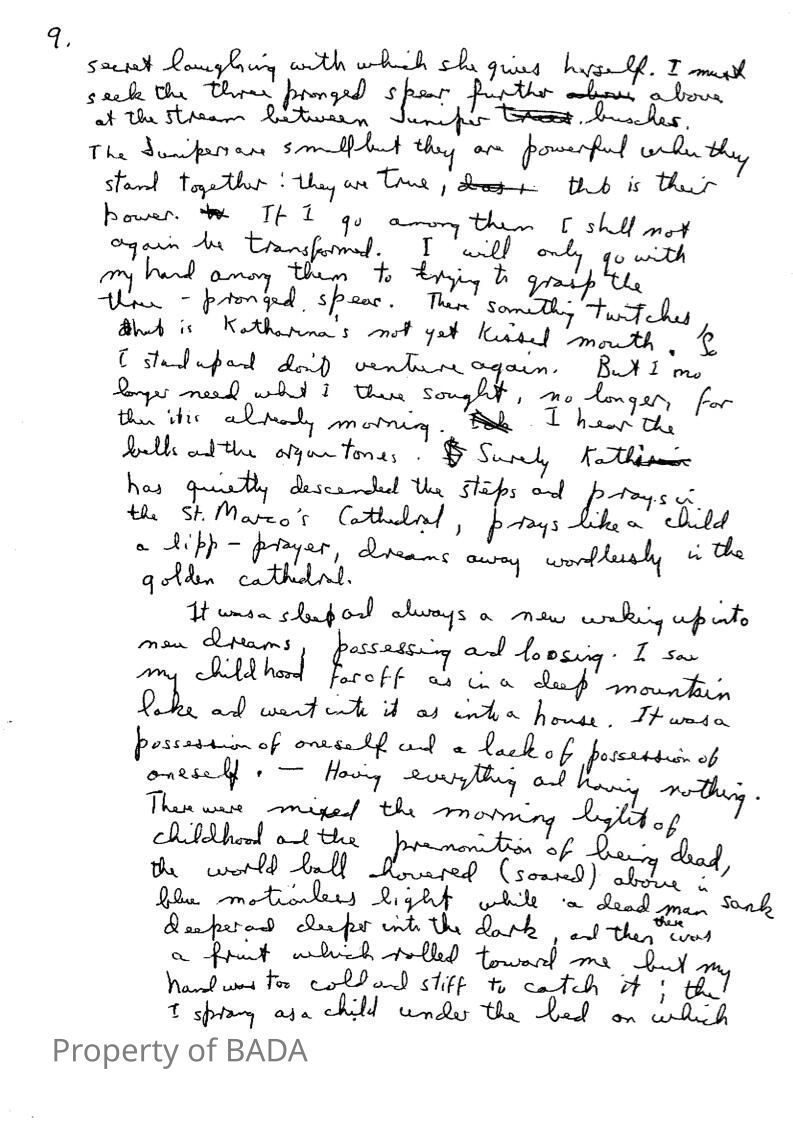 9.
secret laughing with which she gives herself. I must
seek the three pronged spear further above above
at the stream between Juniper trees. busches.
The Junipers are small but they are powerful when they
stand together: they are true, that is their
power. If I go among them I shall not
again be transformed. I will only go with
my hand among them to trying to grasp the
three-pronged spear. There something twitches,
that is Katharina's not yet kissed mouth. So
I stand up and don't venture again. But I no
longer need what I there sought, no longer, for
then it is already morning. I hear the
bells and the organ tones. Surely Katharina
has quietly descended the steps and prays in
the St. Marco's Cathedral, prays like a child
a lipp-prayer, dreams away wordlessly in the
golden cathedral.
It was a sleep and always a new waking up into
new dreams, possessing and loosing. I saw
my childhood far off as in a deep mountain
lake and went into it as into a house. It was a
possession of oneself and a lack of possession of
oneself. — Having everything and having nothing.
There were mixed the morning light of
childhood and the premonition of being dead,
the world ball hovered (soared) above in
blue motionless light while a dead man sank
deeper and deeper into the dark, and then there was
a fruit which rolled toward me but my
hand was too cold and stiff to catch it; the
I sprang as a child under the bed on which
Property of BADA